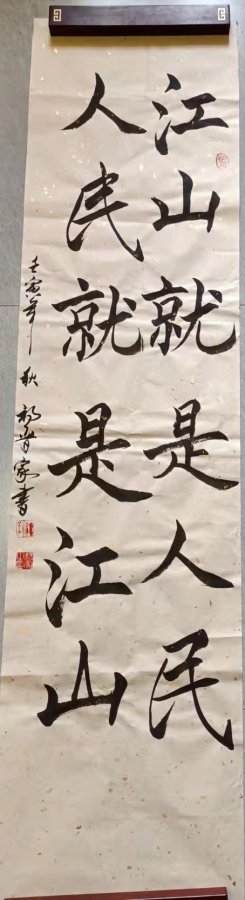 江山就是人民
人民就是江山
壬寅年秋 家書